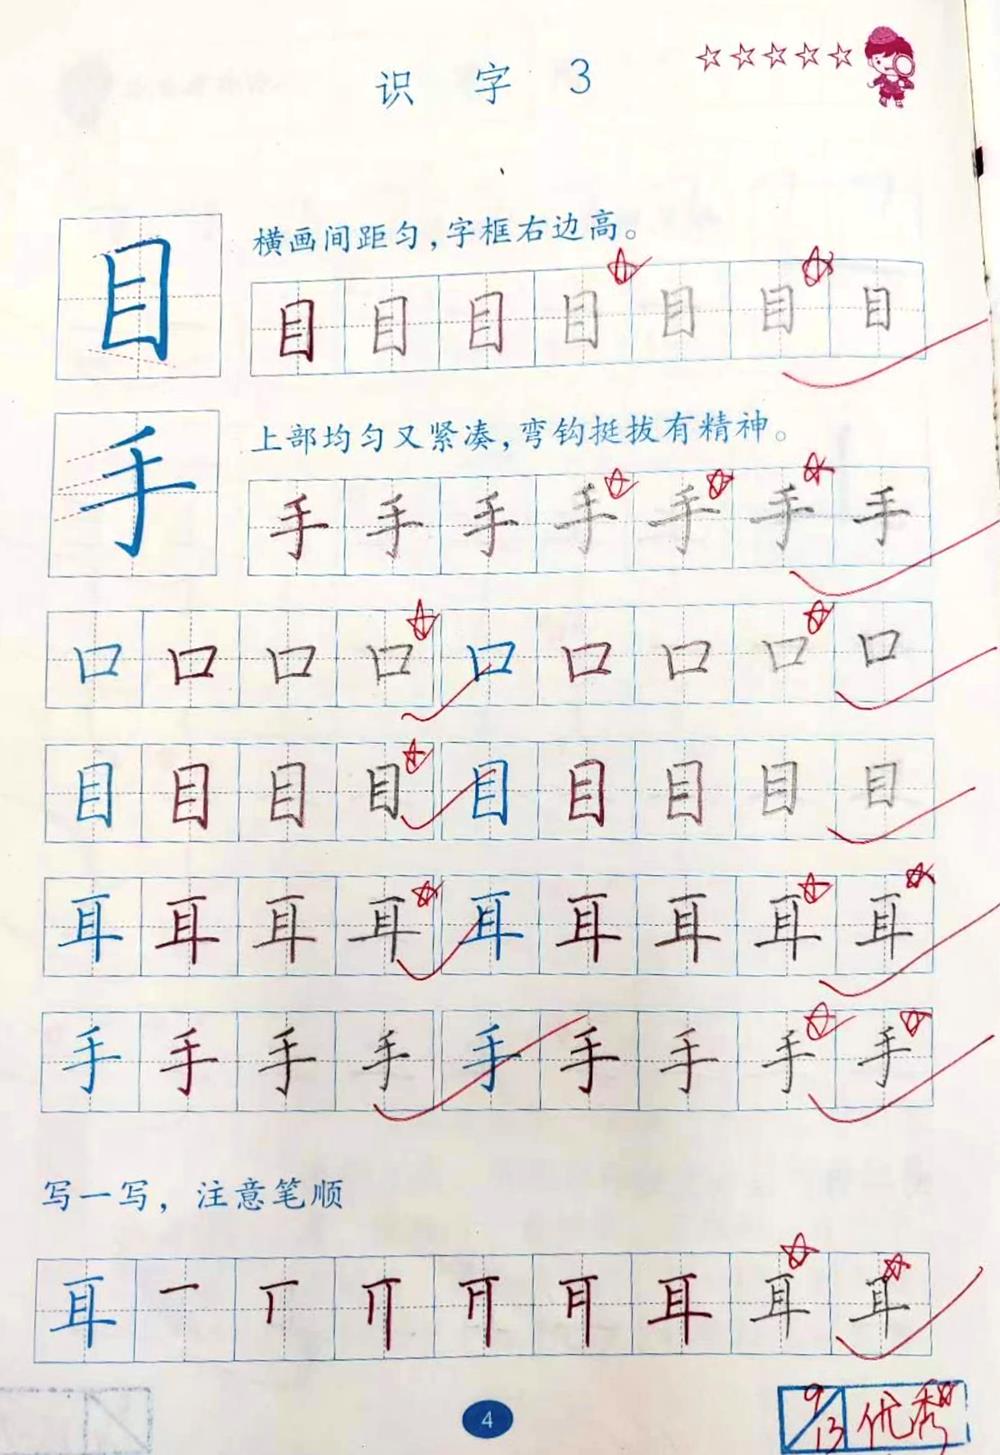 识字3
目
横画间距匀，字框右边高。
目目目目目目目
手
上部均匀又紧凑，弯钩挺拔有精神。
手手手手手手手
口口口口口口口口口
目目目目目目目目目
耳耳耳耳耳耳耳耳耳
手手手手手手手手手
写一写，注意笔顺
耳 耳耳耳
4
9/13 优秀